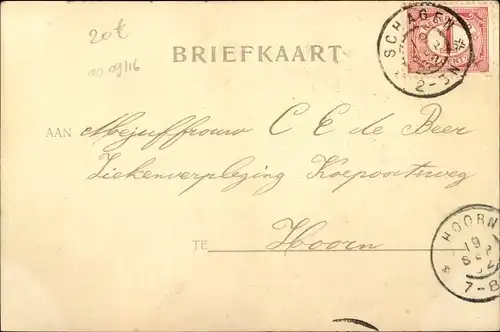 20€
BRIEFKAART
SCHAGEN
2-3N
1
AAN Mejuffrouw C E de Beer
Ziekenverpleging Koepoortsweg
TE Hoorn
HOORN
19
SEP
7-8